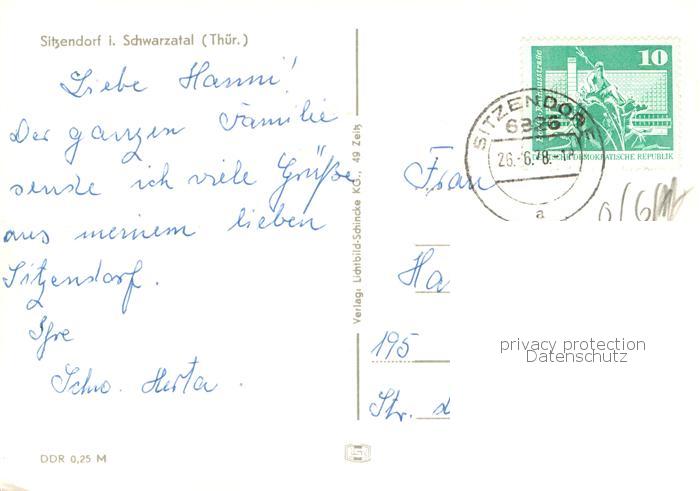 Sitzendorf i. Schwarzatal (Thür.)
Liebe Hanni!
Der ganzen Familie
sende ich viele Grüße
aus meinem lieben
Sitzendorf.
Ihre
Schw. Herta.
DDR 0,25 M
Verlag: Lichtbild-Schincke KG., 49 Zeitz
10
DEMOKRATISCHE REPUBLIK
SITZENDORF
6826
26.-6.78.-
a
Frau
Ha
195
Str. d
privacy protection
Datenschutz